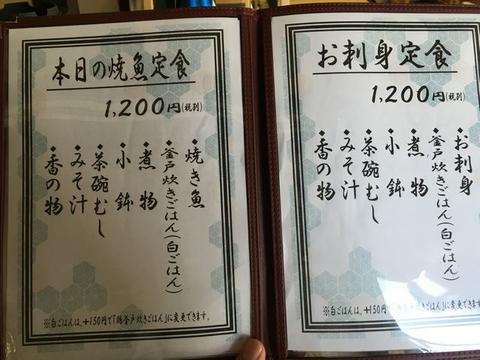 本日の焼魚定食
1,200円(税別)
◆焼き魚
◆釜戸炊きごはん(白ごはん)
◆煮物
◆小鉢
◆茶碗むし
◆みそ汁
◆香の物
お刺身定食
1,200円(税別)
◆お刺身
◆釜戸炊きごはん(白ごはん)
◆煮物
◆小鉢
◆茶碗むし
◆みそ汁
◆香の物
※白ごはんは、+150円で「鯛釜戸炊きごはん」に変更できます。
※白ごはんは、+150円で「鯛釜戸炊きごはん」に変更できます。